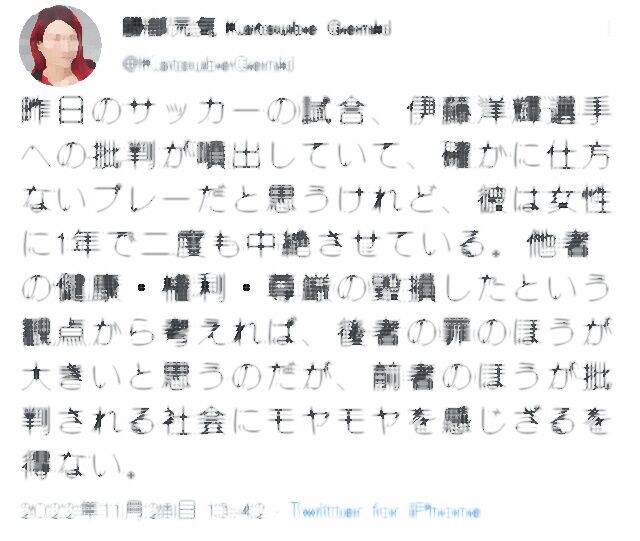 勝部元気 Katsube Genki
@KatsubeGenki
昨日のサッカーの試合、伊藤洋輝選手
への批判が噴出していて、確かに仕方
ないプレーだと思うけれど、彼は女性
に1年で二度も中絶させている。他者
の健康・権利・尊厳の毀損したという
観点から考えれば、後者の罪のほうが
大きいと思うのだが、前者のほうが批
判される社会にモヤモヤを感じざるを
得ない。
2022年11月28日 13:42 · Twitter for iPhone